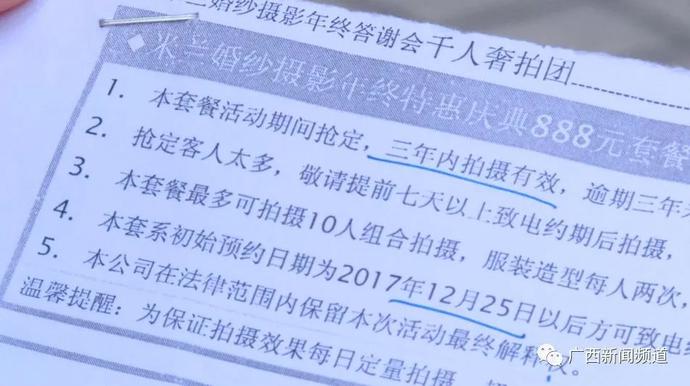 米兰婚纱摄影年终答谢会千人奢拍团
◆米兰婚纱摄影年终特惠庆典888元套餐
1. 本套餐活动期间抢定，三年内拍摄有效，逾期三年
2. 抢定客人太多，敬请提前七天以上致电约期后拍摄，
3. 本套餐最多可拍摄10人组合拍摄，服装造型每人两次，
4. 本套系初始预约日期为2017年12月25日以后方可致电
5. 本公司在法律范围内保留本次活动最终解释权。
温馨提醒：为保证拍摄效果每日定量拍摄
广西新闻频道